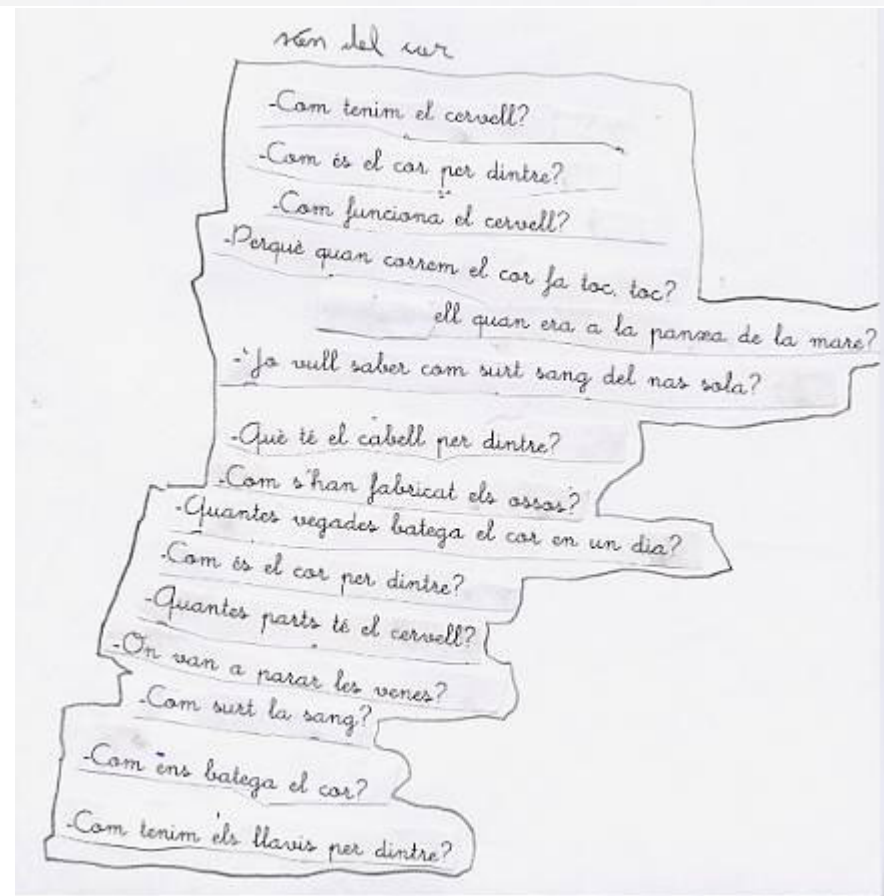 del cor
-Com tenim el cervell?
-Com és el cor per dintre?
-Com funciona el cervell?
-Perquè quan correm el cor fa toc, toc?
ell quan era a la panxa de la mare?
-Jo vull saber com surt sang del nas sola?
-Què té el cabell per dintre?
-Com s'han fabricat els ossos?
-Quantes vegades batega el cor en un dia?
-Com és el cor per dintre?
-Quantes parts té el cervell?
-On van a parar les venes?
-Com surt la sang?
-Com ens batega el cor?
-Com tenim els llavis per dintre?